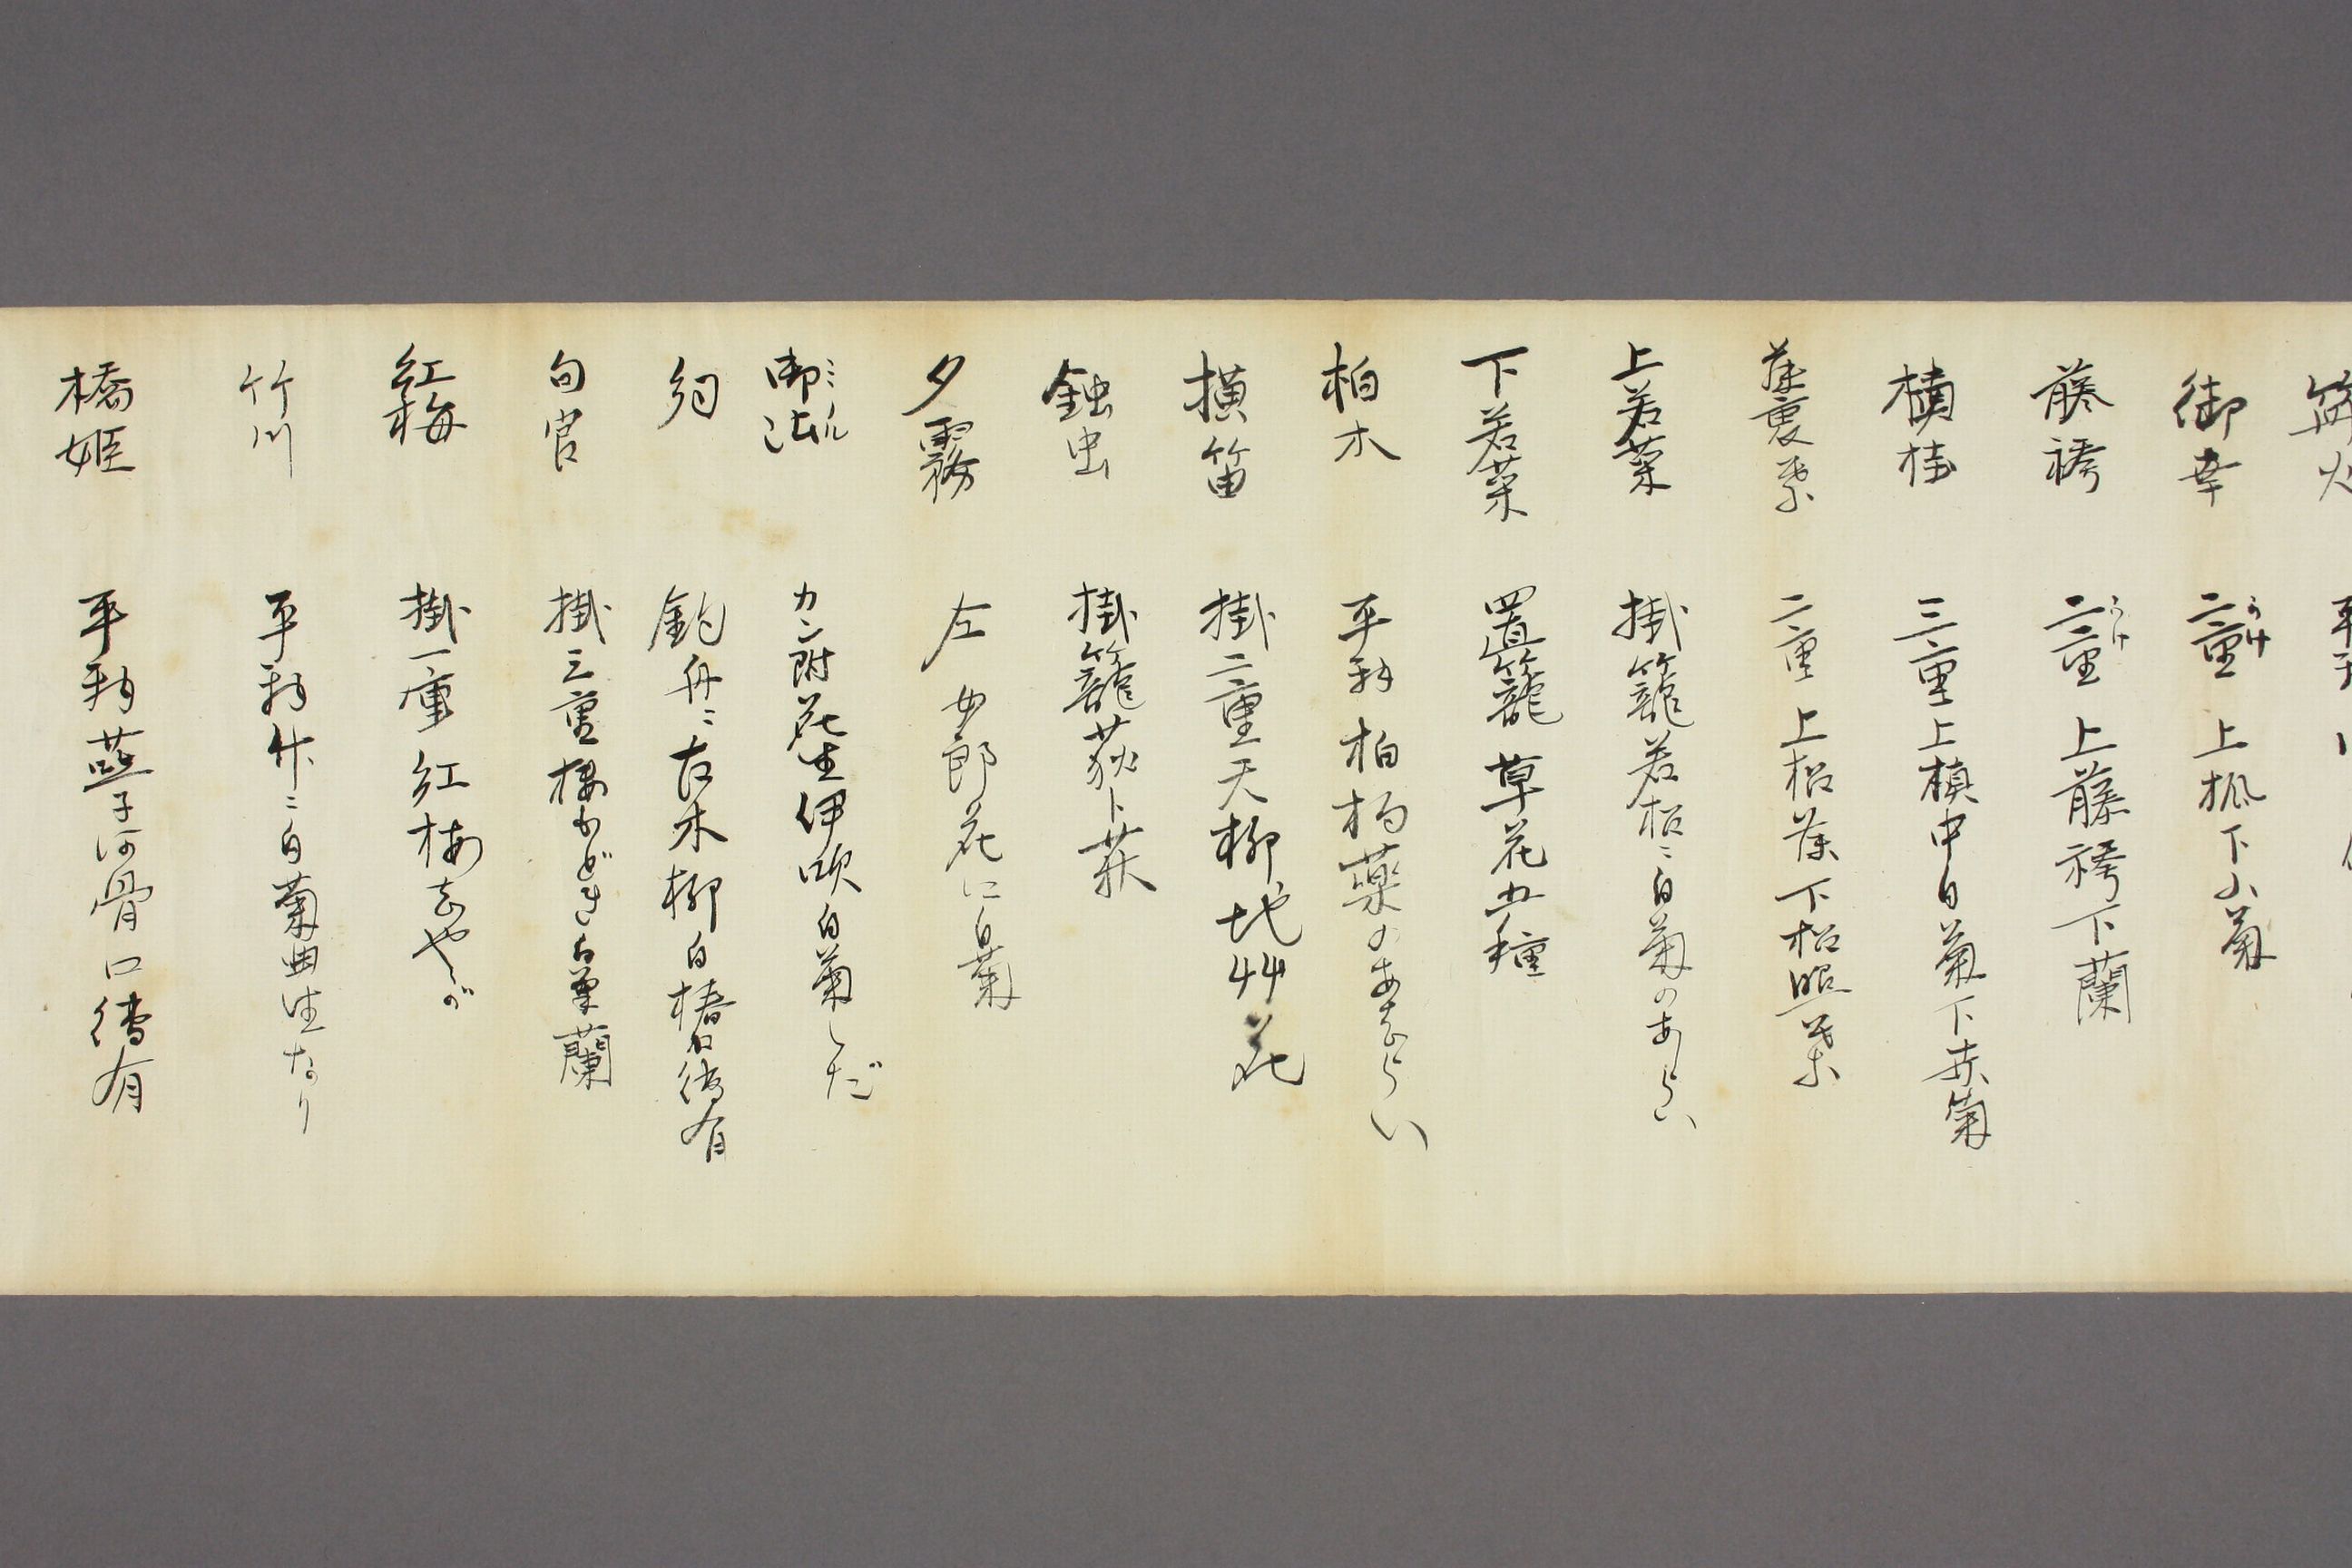 御幸 二重 うけ 上楓下小菊
藤袴 二重 うけ 上藤袴下蘭
槙柱 三重上槙中白菊下赤菊
藤裏葉 二重上松藤下松照葉
上若菜 掛籠若松ニ白菊のあしらい
下若菜 置籠草花五種
柏木 平 柏 薬のあしらい
横笛 掛二重天柳地艸花
鈴虫 掛籠荻ト萩
夕霧 左 女郎花に白菊
御法 ミノル カン附花生伊吹白菊しだ
幻 釣舟ニ古木柳白椿口伝有
匂宮 掛三重梅もどき白菊蘭
紅梅 掛一重紅梅志やが
竹川 平 竹ニ白菊曲生なり
橋姫 平 燕子河骨口傳有